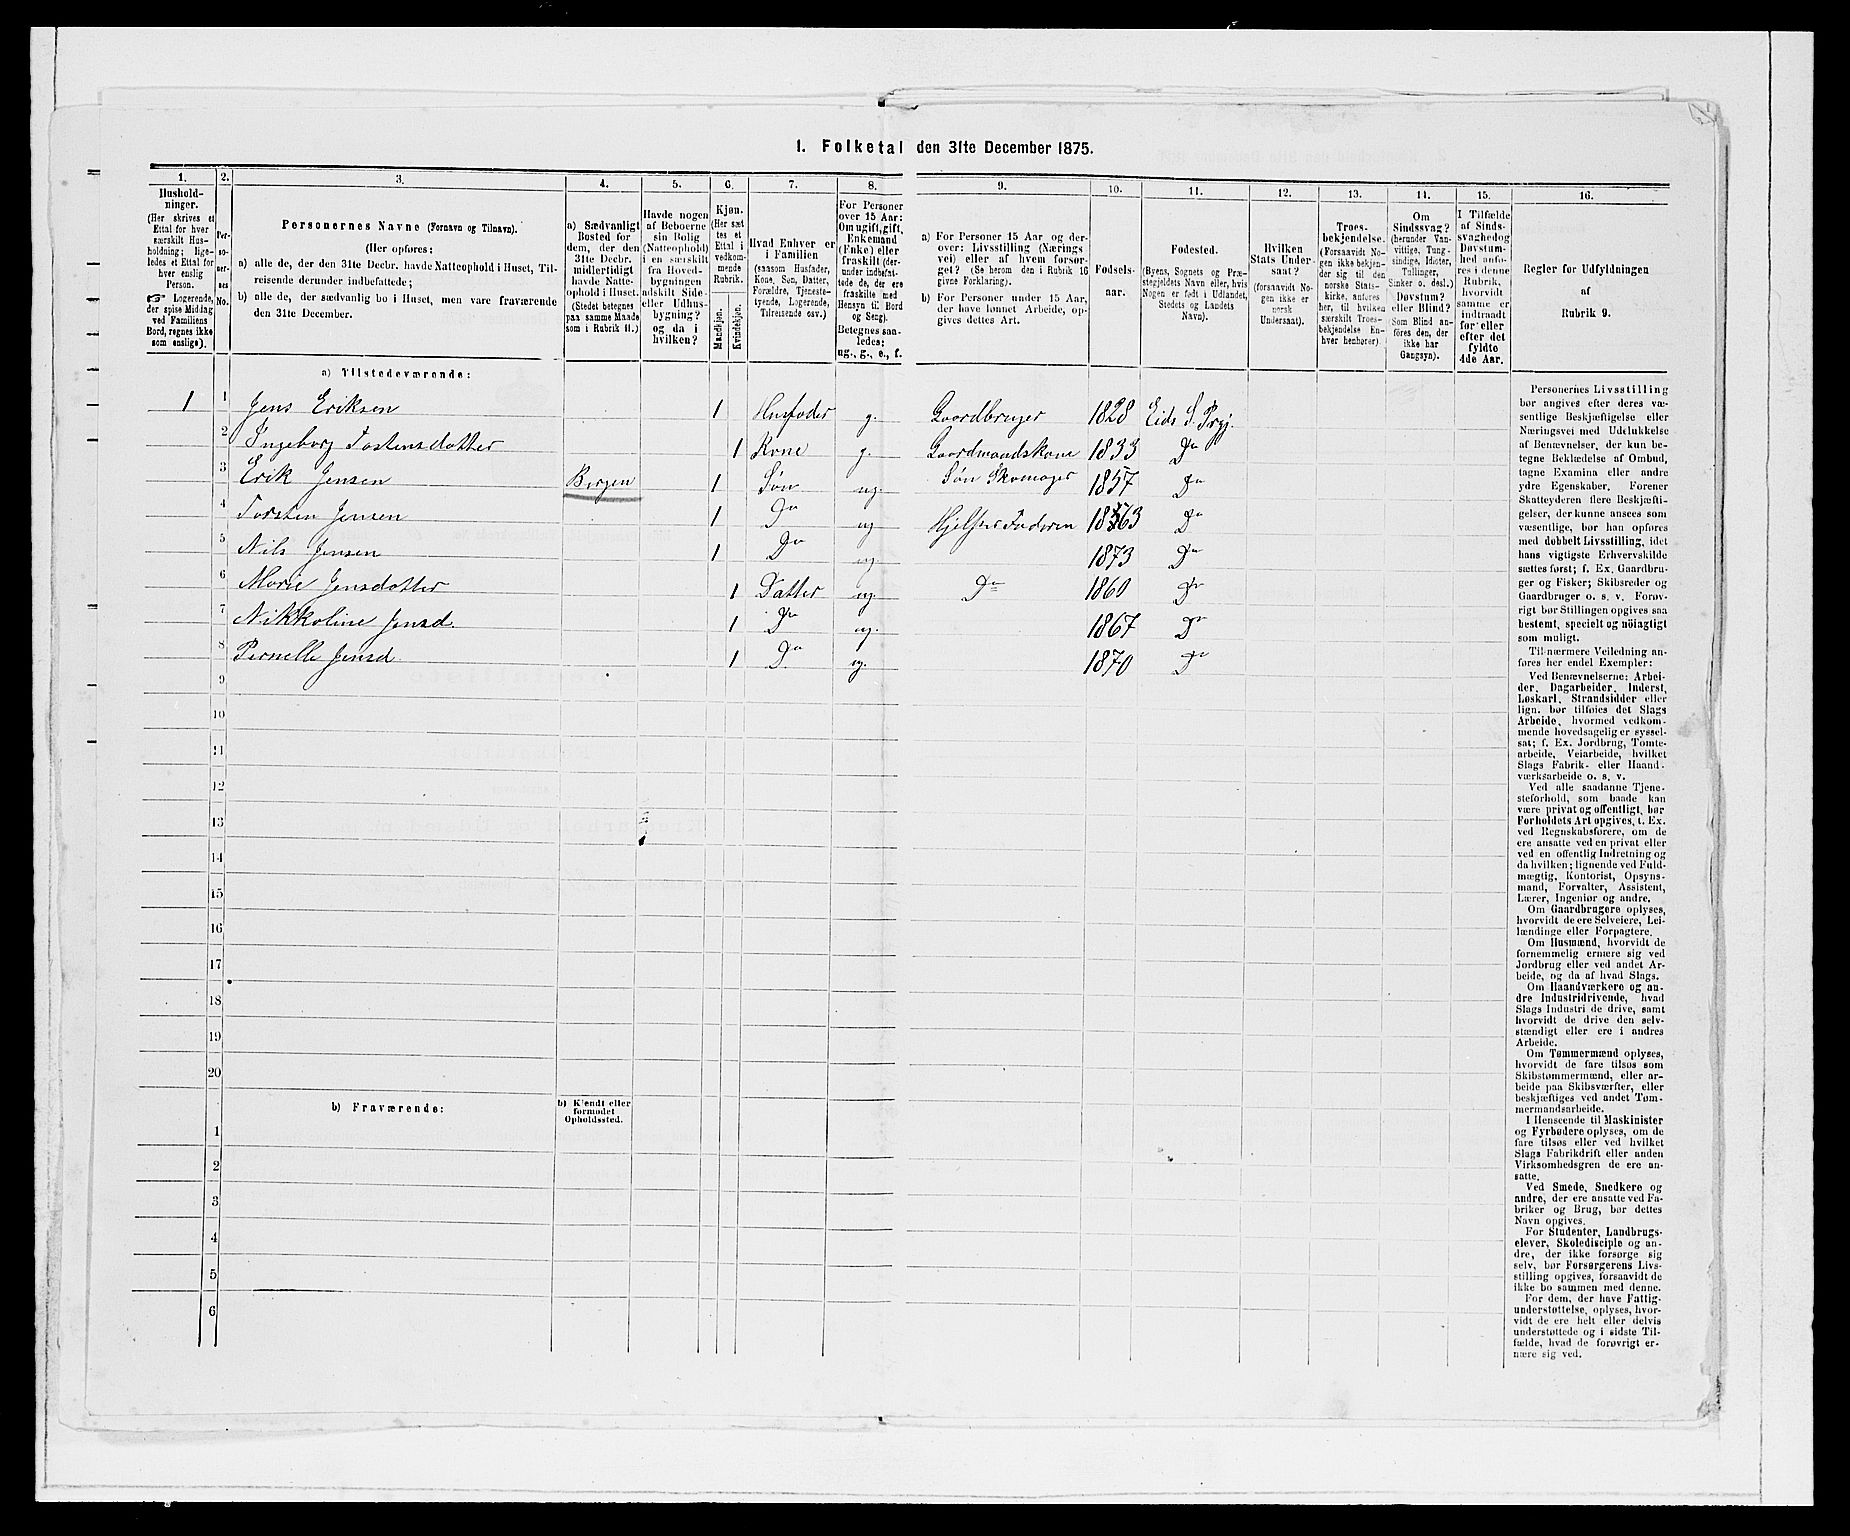 1. Folketal den 31te December 1875.
1. 2. 3. 4. 5. 6. 7. 8. 9. 10. 11. 12. 13. 14. 15. 16.
Hushold-
ninger.
(Her skrives et
Ettal for hver
særskilt Hus-
holdning; lige-
ledes et Ettal for
hver enslig
Person.
☞ Logerende,
der spise Middag
ved Familiens
Bord, regnes ikke
som enslige).
Per-
so-
ner-
nes
No.
Personernes Navne (Fornavn og Tilnavn).
(Her opføres:
a) alle de, der den 31te Decbr. havde Natteophold i Huset, Til-
reisende derunder indbefattede;
b) alle de, der sædvanlig bo i Huset, men vare fraværende
den 31te December.
a) Sædvanligt
Bosted for
dem, der den
31te Decbr.
midlertidigt
havde Natte-
ophold i Huset.
(Stedet betegnes
paa samme Maade
som i Rubrik 11.)
Havde nogen
af Beboerne
sin Bolig
(Natteophold)
i en særskilt
fra Hoved-
bygningen
adskilt Side-
eller Udhus-
bygning?
og da i
hvilken?
Kjøn.
(Her sæt-
tes et
Ettal i
vedkom-
mende
Rubrik.
Mandkjøn.
Kvindekjøn.
Hvad Enhver er
i Familien
(saasom Husfader,
Kone, Søn, Datter,
Forældre, Tjeneste-
tyende, Logerende,
Tilreisende osv.)
For Personer
over 15 Aar:
Om ugift, gift,
Enkemand
(Enke) eller
fraskilt (der-
under indbefat-
tede de, der ere
fraskilte med
Hensyn til Bord
og Seng).
Betegnes saa-
ledes:
ug., g., e., f.
a) For Personer 15 Aar og der-
over: Livsstilling (Nærings
vei) eller af hvem forsør-
get? (Se herom den i Rubrik 16
givne Forklaring).
b) For Personer under 15 Aar,
der have lønnet Arbeide, op-
gives dettes Art.
Fødsels-
aar.
Fødested.
(Byens, Sognets og Præ-
stegjeldets Navn eller, hvis
Nogen er født i Udlandet,
Stedets og Landets
Navn).
Hvilken
Stats Under-
saat?
(forsaavidt No-
gen ikke er
norsk
Undersaat).
Troes-
bekjendelse.
(Forsaavidt No-
gen ikke bekjen-
der sig til den
norske Stats-
kirke, anføres
her, til hvilken
særskilt Troes-
bekjendelse En-
hver henhører).
Om
Sindssvag?
(herunder Van-
vittige, Tung-
sindige, Idioter,
Tullinger,
Sinker o. desl.)
Døvstum?
eller Blind?
(Som Blind an-
føres den, der
ikke har
Gangsyn).
I Tilfælde
af Sinds-
svaghed og
Døvstum-
hed anfø-
res i denne
Rubrik,
hvorvidt
samme er
indtraadt
før eller
efter det
fyldte
4de Aar.
Regler for Udfyldningen
af
Rubrik 9.
a) Tilstedeværende:
1 1 Jens Eriksen 1 Husfader g. Gaardbruger 1828 Eids S. Prgj.
2 Ingeborg Tostensdatter 1 Kone g. Gaardmandskone 1833 Do
3 Erik Jensen Bergen 1 Søn ug. Søn Skomager 1857 Do
4 Torsten Jensen 1 Do ug Hjelper Faderen 1863 Do
5 Nils Jensen 1 Do ug 1873 Do
6 Marie Jensdatter 1 Datter ug. Do 1860 Do
7 Nikkoline Jensd. 1 Do ug. 1867 Do
8 Pernelle Jensd. 1 Do ug. 1870 Do
9
10
11
12
13
14
15
16
17
18
19
20
b) Fraværende: b) Kjendt eller
formodet
Opholdssted.
1
2
3
4
5
6
Personernes Livsstilling
bør angives efter deres væ-
sentlige Beskjæftigelse eller
Næringsvei med Udelukkelse
af Benævnelser, der kun be-
tegne Beklædelse af Ombud,
tagne Examina eller andre
ydre Egenskaber. Forener
Skatteyderen flere Beskjæfti-
gelser, der kunne ansees som
væsentlige, bør han opføres
med dobbelt Livsstilling, idet
hans vigtigste Erhvervskilde
sættes først; f. Ex. Gaardbru-
ger og Fisker; Skibsreder og
Gaardbruger o. s. v. Forøv-
rigt bør Stillingen opgives saa
bestemt, specielt og nöiagtigt
som muligt.
Til nærmere Veiledning an-
føres her endel Exempler:
Ved Benævnelserne: Arbei-
der, Dagarbeider, Inderst,
Løskarl, Strandsidder eller
lign. bør tilføies det Slags
Arbeide, hvormed vedkom-
mende hovedsagelig er syssel-
sat; f. Ex. Jordbrug, Tomte-
arbeide, Veiarbeide, hvilket
Slags Fabrik- eller Haand-
værksarbeide o. s. v.
Ved alle saadanne Tjene-
steforhold, som baade kan
være privat og offentligt, bør
Forholdets Art opgives, t. Ex.
ved Regnskabsførere, om de
ere ansatte ved en privat eller
ved en offentlig Indretning og
da hvilken; lignende ved Fuld-
mægtig, Kontorist, Opsyns-
mand, Forvalter, Assistent,
Lærer, Ingeniør og andre.
Om Gaardbrugere oplyses,
hvorvidt de ere Selveiere, Lei-
lændinge eller Forpagtere.
Om Husmænd, hvorvidt de
fornemmelig ernære sig ved
Jordbrug eller ved andet Ar-
beide, og da af hvad Slags.
Om Haandværkere og an-
dre Industridrivende, hvad
Slags Industri de drive, samt
hvorvidt de drive den selv-
stændigt eller ere i andres
Arbeide.
Om Tømmermænd oplyses,
hvorvidt de fare tilsøs som
Skibstømmermænd, eller ar-
beide paa Skibsværfter, eller
beskjæftiges ved andet Tøm-
mermandsarbeide.
I Henseende til Maskinister
og Fyrbødere oplyses, om de
fare tilsøs eller ved hvilket
Slags Fabrikdrift eller anden
Virksomhedsgren de ere an-
satte.
Ved Smede, Snedkere og
andre, der ere ansatte ved Fa-
briker og Brug, bør dettes
Navn opgives.
For Studenter, Landbrugs-
elever, Skoledisciple og an-
dre, der ikke forsørge sig
selv, bør Forsørgerens Livs-
stilling opgives, forsaavidt de
ikke bo sammen med denne.
For dem, der have Fattig-
understøttelse, oplyses, hvor-
vidt de ere helt eller delvis
understøttede og i sidste Til-
fælde, hvad de forøvrigt er-
nære sig ved.